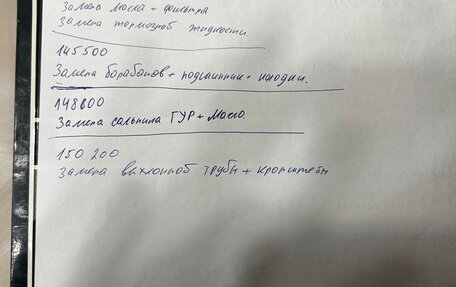 Замена масла + фильтра
Замена тормозной жидкости
145500
Замена барабанов + подшипники + колодки.
148600
Замена сальника ГУР + масло
150 200
Замена выхлопной трубы + кронштейн